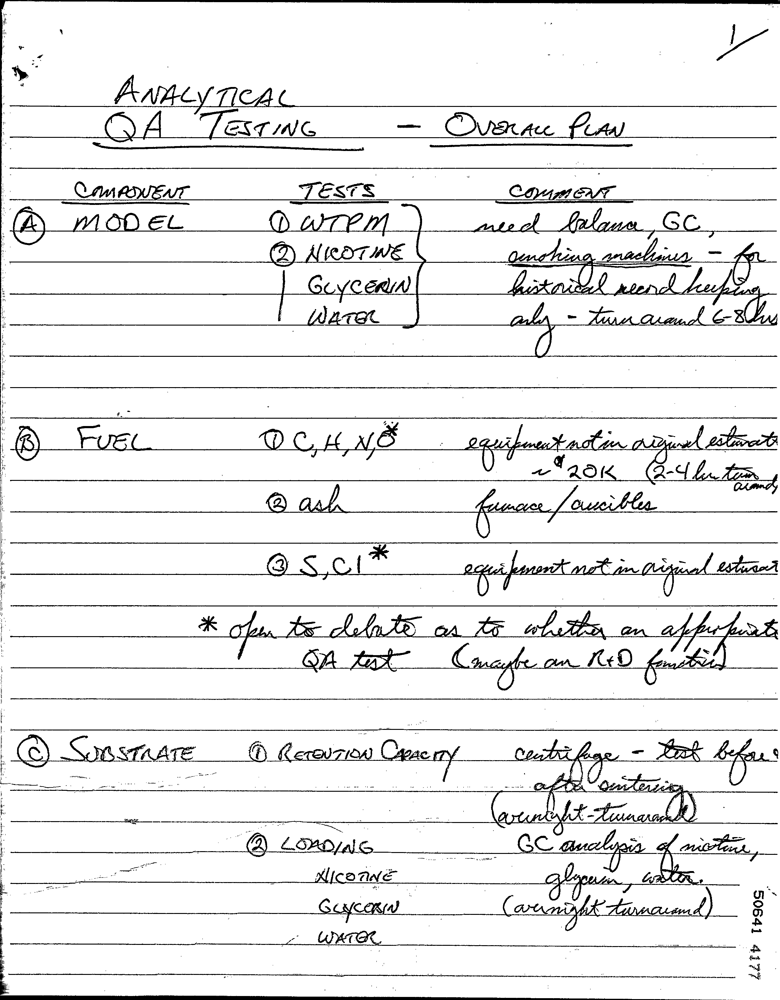 1
ANALYTICAL
QA TESTING - OVERALL PLAN
COMPONENT TESTS COMMENT
A MODEL ① WTPM need balance, GC,
② NICOTINE smoking machines - for
GLYCERIN historical record keeping
WATER only - turn around 6-8 hrs
B FUEL ① C, H, N, O* equipment not in original estimate
~ $20K (2-4 hr turn
around)
② ash furnace / crucibles
③ S, Cl * equipment not in original estimat
* open to debate as to whether an appropriate
QA test (maybe an R+D function)
C SUBSTRATE ① RETENTION CAPACITY centrifuge - test before &
after sintering
(overnight-turnaround)
② LOADING GC analysis of nicotine,
NICOTINE glycerin, water.
GLYCERIN (overnight turnaround)
WATER
50641 4177